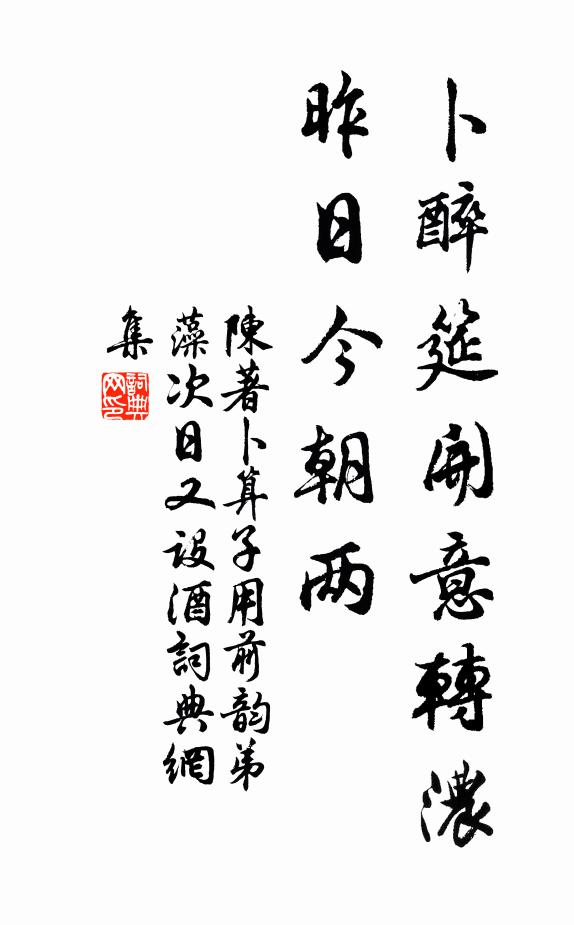 卜醉筵開意轉濃
昨日今朝两
陳著卜算子用前韵弟
藻次日又設酒詞典網
集
詞典
网印